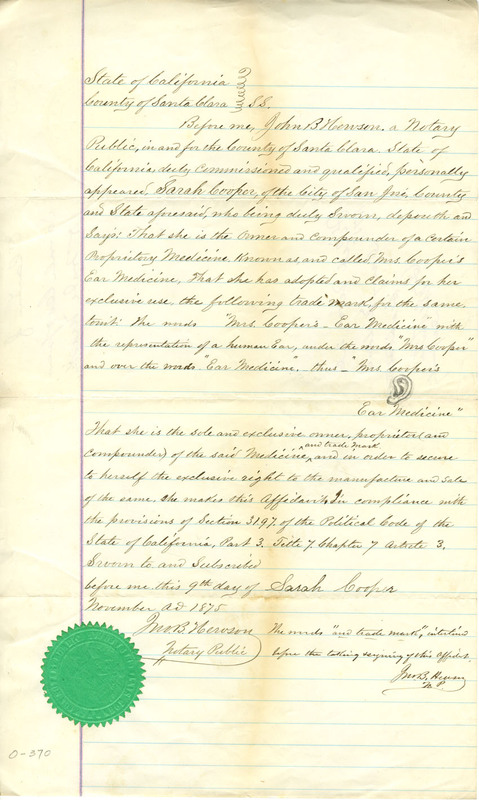 State of California
County of Santa Clara SS.
Before me, John B Hewson, a Notary
Public, in and for the County of Santa Clara State of
California duly commissioned and qualified, personally
appeared Sarah Cooper, of the City of San Jose, County
and State aforesaid, who being duly Sworn, deposeth and
Says: That she is the Owner and compounder of a certain
Propriitory Medicine Known as and called Mrs. Cooper's
Ear Medicine, That she has adopted and claims for her
exclusive use, the following trade mark, for the same
towit: The words "Mrs Cooper's - Ear Medicine" with
the representation of a human Ear, under the words "Mrs Cooper"
and over the words "Ear Medicine". thus - "Mrs Cooper's
Ear Medicine"
That she is the sole and exclusive owner, proprietor (and
and trade mark
compounder) of the said Medicine, and in order to secure
to herself the exclusive right to the manufacture and sale
of the same. She makes this Affidavit, In compliance with
the provisions of Section 3197. of the Political Code of the
State of California, Part 3. Title 7. Chapter 7 Article 3,
Sworn to and Subscribed
before me this 9th day of Sarah Cooper
November A.D. 1875
Jno B. Hewson
Notary Public
The words "and trade mark", interlined
before the taking & signing of this Affidvt.
Jno B. Hewson
N.P.
0-370